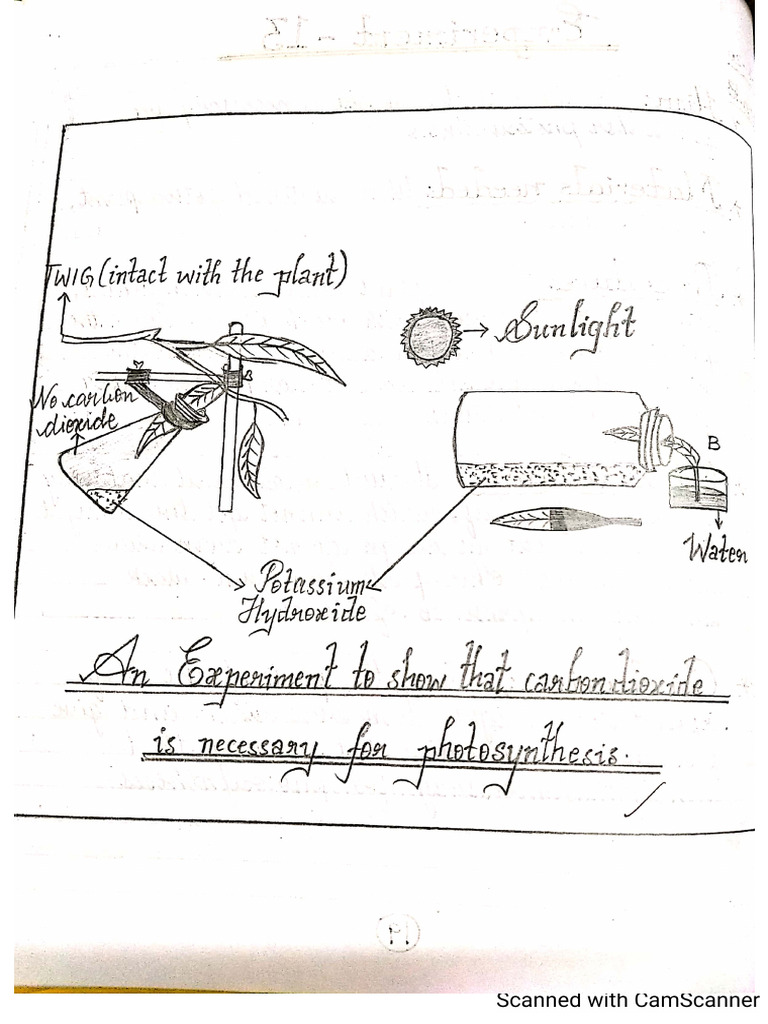 TWIG (intact with the plant)
Sunlight
No carbon
dioxide
B
Water
Potassium
Hydroxide
An Experiment to show that carbondioxide
is necessary for photosynthesis.
Scanned with CamScanner